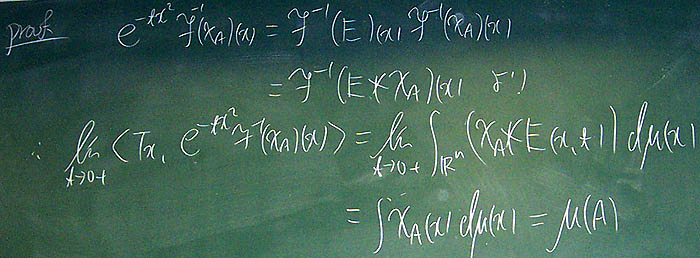 proof e^{-tx²} ℱ^{-1}(χ_A)(x) = ℱ^{-1}(E)(x) ℱ^{-1}(χ_A)(x)
= ℱ^{-1}(E * χ_A)(x)
∴ lim_{t→0+} ⟨T_x, e^{-tx²} ℱ^{-1}(χ_A)(x)⟩ = lim_{t→0+} ∫_{ℝ^n} (χ_A * E(x, t) dμ(x)
= ∫ χ_A(x) dμ(x) = μ(A)